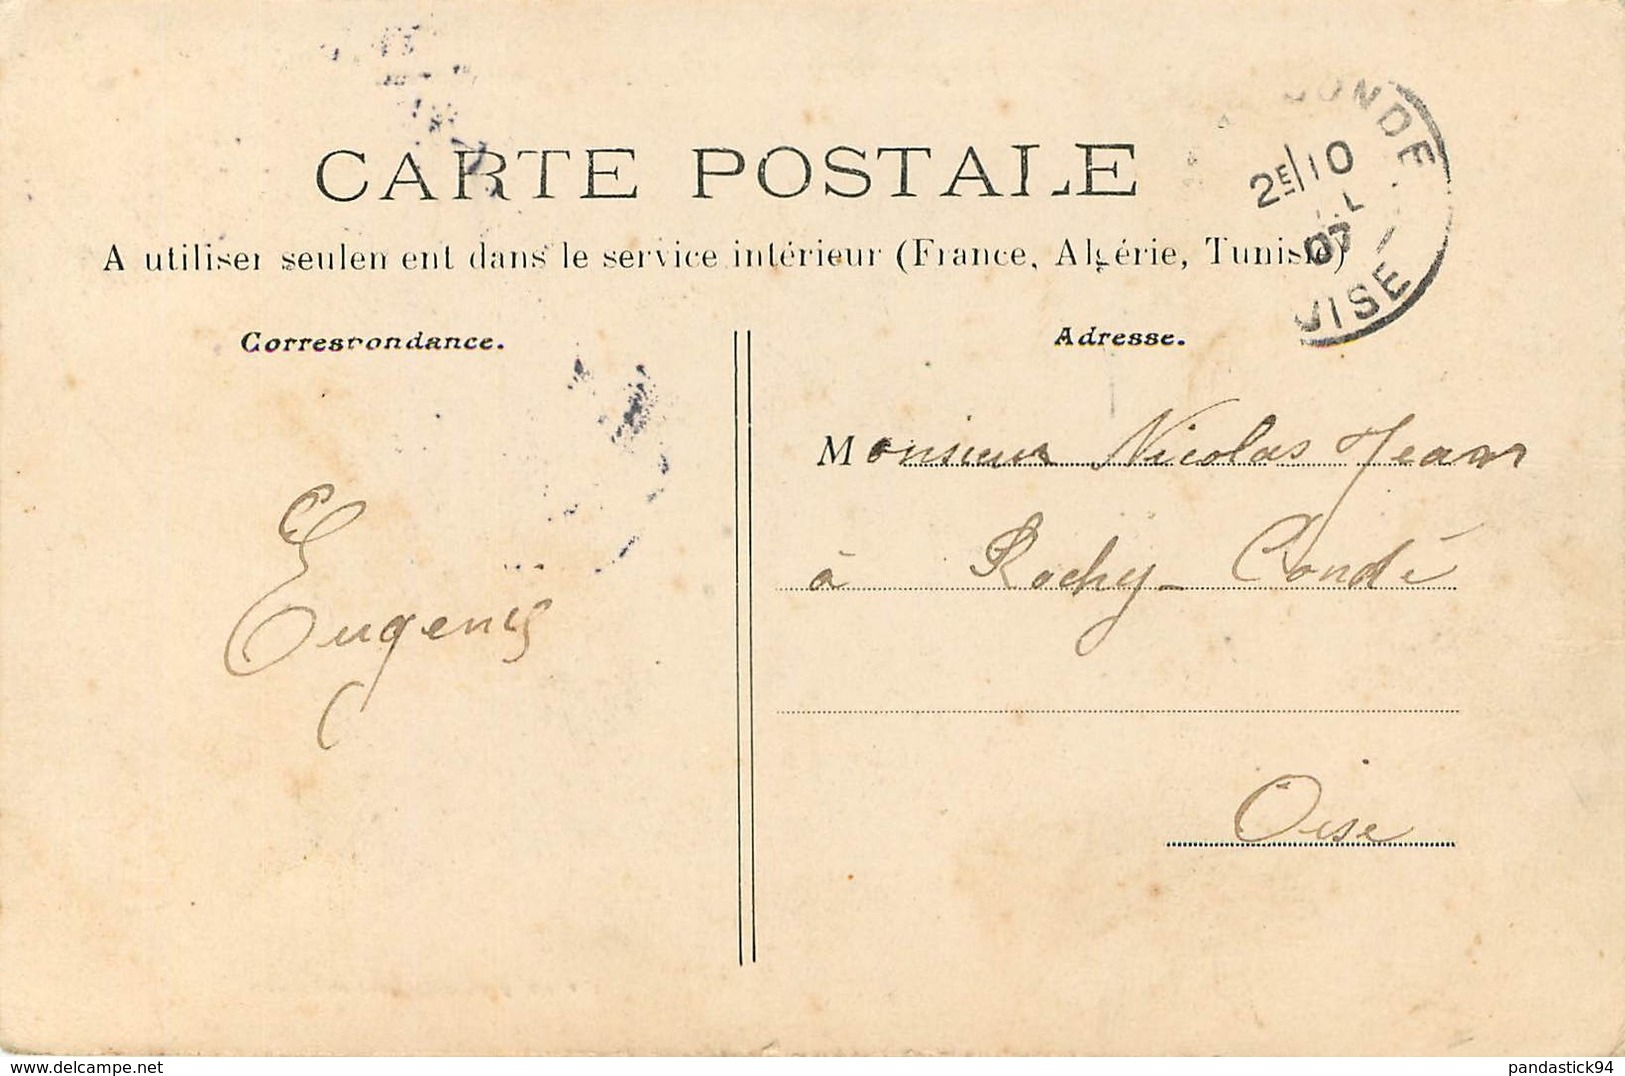 CARTE POSTALE
A utiliser seulement dans le service intérieur (France, Algérie, Tunisie)
Correspondance.
Adresse.
2E/10
07
OISE
Monsieur Nicolas Jean
à Rochy-Condé
Oise
Eugenie
delcampe.net
pandastick94